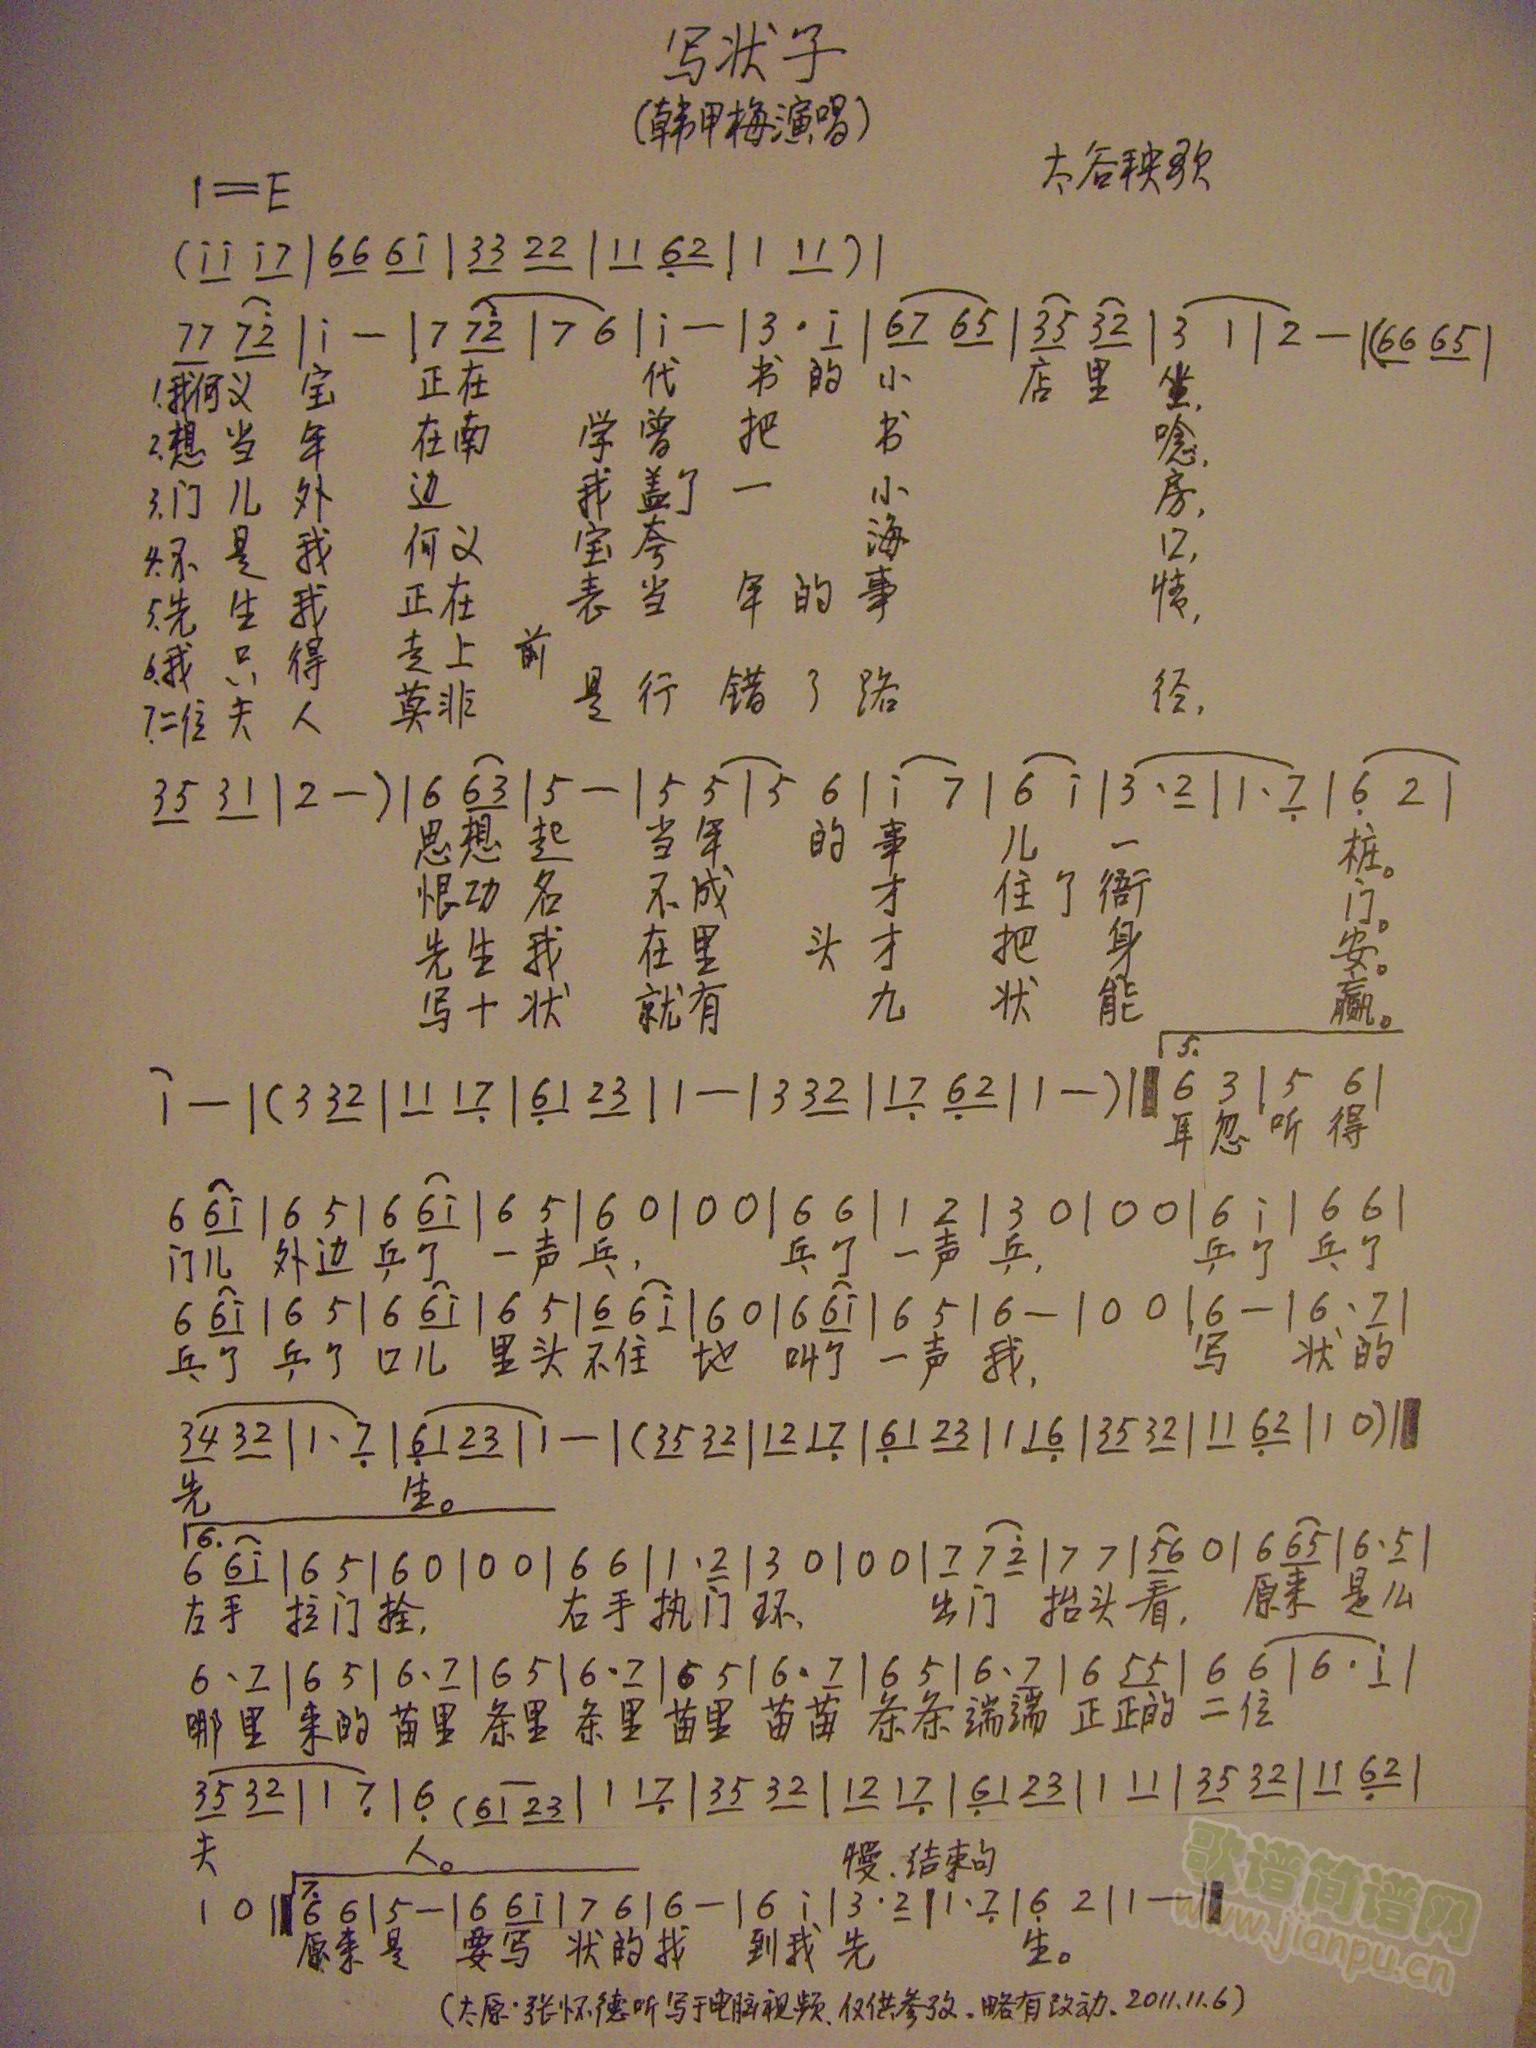 写状子
(韩甲梅演唱)
太谷秧歌
1=E
(i̲i̲ i̲7̲|6̲6̲ 6̲i̲|3̲3̲ 2̲2̲|1̲1̲ 6̣̲2̲|1 1̲1̲)|
7̲7̲ 7̲2̲̇|i —|7 7̲2̲̇|7 6|i —|3·i̲|6̲7̲ 6̲5̲|3̲5̲ 3̲2̲|3 1|2 —|(6̲6̲ 6̲5̲|
1.我何义 宝 正在 代 书的小 店里 坐,
2.想当年 在南 学曾 把 书 唸,
3.门儿外 边 我盖了一 小 房,
4.不是我 何义 宝夸 海 口,
5.先生我 正在 表当 年的事 情,
6.我只得 走上 前
7.二位夫人 莫非 是行 错了路 径,
3̲5̲ 3̲1̲|2 —)|6 6̲3̲|5 —|5 5|5 6|i 7|6 i|3·2̲|1·7̣̲|6̣ 2|
思想起 当年 的事 儿 一 桩。
恨功名 不成 才 住了衙 门。
先生我 在里 头才 把 身 安。
写十状 就有 九 状 能 赢。
1 —|(3 3̲2̲|1̲1̲ 1̲7̣̲|6̣̲1̲ 2̲3̲|1 —|3 3̲2̲|1̲7̣̲ 6̣̲2̲|1 —)‖ 5. 6 3|5 6|
耳忽听得
6 6̲i̲|6 5|6 6̲i̲|6 5|6 0|0 0|6 6|1 2|3 0|0 0|6 i|6 6|
门儿 外边 乒了 一声 乒, 乒了 一声 乒, 乒了 乒了
6 6̲i̲|6 5|6 6̲i̲|6 5|6̲ 6̲i̲|6 0|6 6̲i̲|6 5|6 —|0 0|6 —|6·7̲|
乒了 乒了 口儿 里头 不住 地 叫了 一声 我, 写 状的
3̲4̲ 3̲2̲|1·7̣̲|6̣̲1̲ 2̲3̲|1 —|(3̲5̲ 3̲2̲|1̲2̲ 1̲7̣̲|6̣̲1̲ 2̲3̲|1 1̲6̣̲|3̲5̲ 3̲2̲|1̲1̲ 6̣̲2̲|1 0)‖
先 生。
6. 6 6̲i̲|6 5|6 0|0 0|6 6|1·2̲|3 0|0 0|7 7̲2̲̇|7 7|5̲6̲ 0|6 6̲5̲|6·5̲|
左手 拉门 拴, 右手 执门 环, 出门 抬头 看, 原来 是么
6·7̲|6 5|6·7̲|6 5|6·7̲|6 5|6·7̲|6 5|6·7̲|6 5̲5̲|6 6|6·i̲|
哪里 来的 苗里 条里 条里 苗里 苗苗 条条 端端 正正的 二位
3̲5̲ 3̲2̲|1 7̣|6̣ (6̣̲1̲ 2̲3̲|1 1̲7̣̲|3̲5̲ 3̲2̲|1̲2̲ 1̲7̣̲|6̣̲1̲ 2̲3̲|1 1̲1̲|3̲5̲ 3̲2̲|1̲1̲ 6̣̲2̲|
夫 人。 慢、结束句
1 0‖ 7. 6 6|5 —|6 6̲i̲|7 6|6 —|6 i|3·2̲|1·7̣̲|6̣ 2|1 —‖
原来是 要写 状的我 到我先 生。
(太原·张怀德听写于电脑视频、仅供参考。略有改动、2011.11.6)
歌谱简谱网
www.jianpu.cn